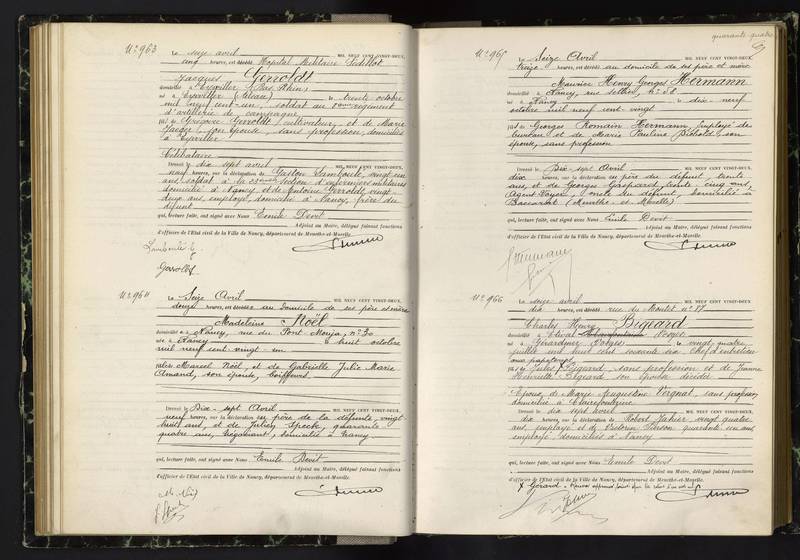 N° 963
Le seize avril MIL NEUF CENT VINGT-DEUX,
cinq heures, est décédé Hôpital Militaire Sédillot
Jacques Gerroldt
domicilié à Eywiller (Bas Rhin)
né à Eywiller (Alsace) le trente octobre
mil neuf cent un, soldat au 8ème régiment
d'artillerie de campagne
fils de Grégoire Gerroldt, cultivateur, et de Marie
Jaeger, son épouse, sans profession, domiciliés
à Eywiller
Célibataire
Dressé le dix sept avril MIL NEUF CENT VINGT-DEUX,
neuf heures, sur la déclaration de Gaston Lambouté, vingt un
ans, soldat à la 23ème section d'infirmiers militaires
domicilié à Nancy et de Antoine Gerroldt, vingt
deux ans, employé, domicilié à Nancy, frère du
défunt
qui, lecture faite, ont signé avec Nous Emile Devit
Adjoint au Maire, délégué faisant fonctions
d'officier de l'Etat civil de la Ville de Nancy, département de Meurthe-et-Moselle.
Gerroldt
N° 964
Le Seize Avril MIL NEUF CENT VINGT-DEUX,
douze heures, est décédée au domicile de ses père et mère
Madeleine Noël
domiciliée à Nancy, rue du Pont Mouja, n° 30
née à Nancy le huit octobre
mil neuf cent vingt un
fille de Marcel Noël, et de Gabrielle Julie Marie
Amand, son épouse, coiffeurs
Dressé le Dix-sept Avril MIL NEUF CENT VINGT-DEUX,
neuf heures, sur la déclaration de père de la défunte, vingt
huit ans, et de Julien Speck, quarante
quatre ans, négociant, domicilié à Nancy
qui, lecture faite, ont signé avec Nous Emile Devit
Adjoint au Maire, délégué faisant fonctions
d'officier de l'Etat civil de la Ville de Nancy, département de Meurthe-et-Moselle.
quarante quatre
N° 965
Le Seize Avril MIL NEUF CENT VINGT-DEUX,
treize heures, est décédé au domicile de ses père et mère
Maurice Henry Georges Hermann
domicilié à Nancy, rue
né à Nancy le dix neuf
octobre mil neuf cent vingt
fils de Georges Romain Hermann, employé de
bureau et de Marie Pauline Bicholdt, son
épouse, sans profession
Dressé le Dix-sept Avril MIL NEUF CENT VINGT-DEUX,
dix heures, sur la déclaration de père du défunt, trente
ans, et de Georges Gaspard, trente cinq ans,
Agent Voyer, oncle du défunt, domicilié à
Baccarat (Meurthe-et-Moselle)
qui, lecture faite, ont signé avec Nous Emile Devit
Adjoint au Maire, délégué faisant fonctions
d'officier de l'Etat civil de la Ville de Nancy, département de Meurthe-et-Moselle.
N° 966
Le seize avril MIL NEUF CENT VINGT-DEUX,
dix heures, est décédé rue du Montet n° 17
Charles Henry Bigeard
domicilié à Etival Vosges
né à Gérardmer (Vosges) le vingt quatre
juillet mil huit cent soixante six Chef d'entretien
aux papeteries
fils de Jules Bigeard, sans profession et de Jeanne
Henriette Bégard son épouse décédés
Epoux de Marie Augustine Vergnat, sans profession
domiciliée à Clairefontaine
Dressé le dix sept avril MIL NEUF CENT VINGT-DEUX,
dix heures, sur la déclaration de Robert Jahier, vingt quatre
ans, employé et de Victorin quarante un ans
employé, domiciliés à Nancy
qui, lecture faite, ont signé avec Nous Emile Devit
Adjoint au Maire, délégué faisant fonctions
d'officier de l'Etat civil de la Ville de Nancy, département de Meurthe-et-Moselle.